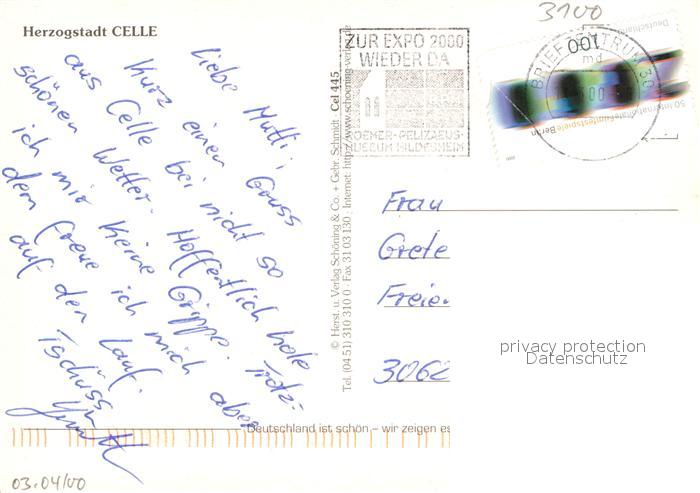 3100
Herzogstadt CELLE
Liebe Mutti,
kurz einen Gruss
aus Celle bei nicht so
schönen Wetter. Hoffentlich hole
ich mir keine Grippe. Trotz-
dem freue ich mich aber
auf den Lauf.
Tschüss
© Herst. u. Verlag Schöning & Co. + Gebr. Schmidt · Cel 445
Tel. (04 51) 310 310 0 · Fax 31 03 130 · Internet: http://www.schoening-verlag.de
ZUR EXPO 2000
WIEDER DA
ROEMER-PELIZAEUS-
MUSEUM HILDESHEIM
BRIEFZENTRUM 30
md
100
Deutschland
50 Internationale Filmfestspiele Berlin
Frau
Grete
Freie.
3062
privacy protection
Datenschutz
Deutschland ist schön – wir zeigen es
03.04/00